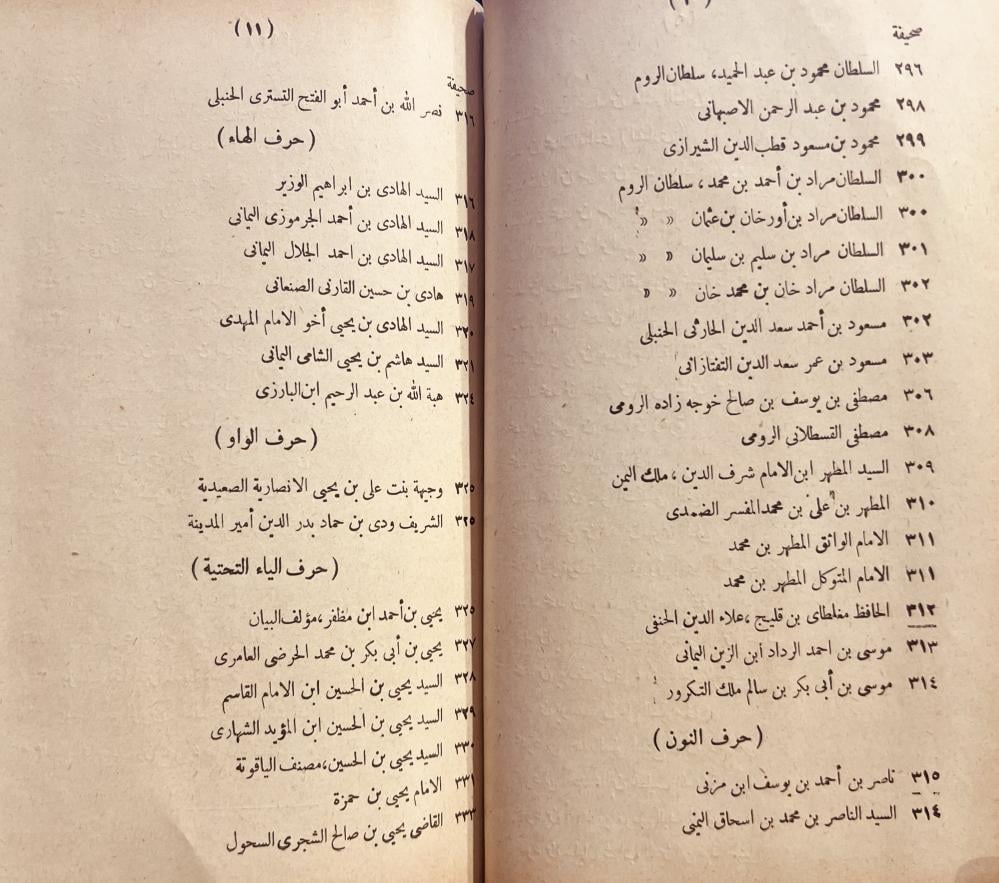 صحيفة
٢٩٦ السلطان محمود بن عبد الحميد، سلطان الروم
٢٩٨ محمود بن عبد الرحمن الاصبهانى
٢٩٩ محمود بن مسعود قطب الدين الشيرازى
٣٠٠ السلطان مراد بن أحمد بن محمد، سلطان الروم
٣٠٠ السلطان مراد بن أورخان بن عثمان » »
٣٠١ السلطان مراد بن سليم بن سليمان » »
٣٠٢ السلطان مراد خان بن محمد خان » »
٣٠٢ مسعود بن أحمد سعد الدين الحارثى الحنبلى
٣٠٣ مسعود بن عمر سعد الدين التفتازانى
٣٠٦ مصطفى بن يوسف بن صالح خوجه زاده الرومى
٣٠٨ مصطفى القسطلانى الرومى
٣٠٩ السيد المطهر ابن الامام شرف الدين، ملك اليمن
٣١٠ المطهر بن على بن محمد المفسر الضمدى
٣١١ الامام الواثق المطهر بن محمد
٣١١ الامام المتوكل المطهر بن محمد
٣١٢ الحافظ مغلطاى بن قليج، علاء الدين الحنفى
٣١٣ موسى بن احمد الرداد ابن الزين اليمانى
٣١٤ موسى بن أبى بكر بن سالم ملك التكرور
(حرف النون)
٣١٥ ناصر بن أحمد بن يوسف ابن مزنى
٣١٤ السيد الناصر بن محمد بن اسحاق اليمنى
(١١)
صحيفة
٣١٦ نصر الله بن أحمد أبو الفتح التسترى الحنبلى
(حرف الهاء)
٣١٦ السيد الهادى بن ابراهيم الوزير
٣١٨ السيد الهادى بن أحمد الجرموزى اليمانى
٣١٧ السيد الهادى بن احمد الجلال اليمانى
٣١٩ هادى بن حسين القارنى الصنعانى
٣٢٠ السيد الهادى بن يحيى أخو الامام المهدى
٣٢١ السيد هاشم بن يحيى الشامى اليمانى
٣٢٤ هبة الله بن عبد الرحيم ابن البارزى
(حرف الواو)
٣٢٥ وجيهة بنت على بن يحيى الانصارية الصعيدية
٣٢٥ الشريف ودى بن حماد بدر الدين أمير المدينة
(حرف الياء التحتية)
٣٢٥ يحيى بن أحمد ابن مظفر، مؤلف البيان
٣٢٧ يحيى بن أبى بكر بن محمد الحرضى العامرى
٣٢٨ السيد يحيى بن الحسين ابن الامام القاسم
٣٢٩ السيد يحيى بن الحسين ابن المؤيد الشهارى
٣٣٠ السيد يحيى بن الحسين، مصنف الياقوتة
٣٣١ الامام يحيى بن حمزة
٣٣٣ القاضى يحيى بن صالح الشجرى السحول